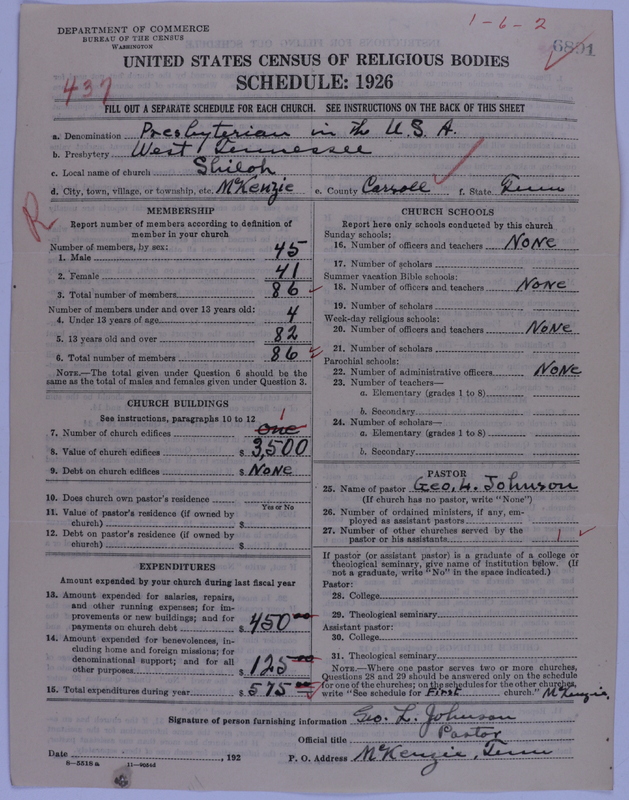 1-6-2
DEPARTMENT OF COMMERCE
BUREAU OF THE CENSUS
WASHINGTON
6891
UNITED STATES CENSUS OF RELIGIOUS BODIES
SCHEDULE: 1926
437
FILL OUT A SEPARATE SCHEDULE FOR EACH CHURCH. SEE INSTRUCTIONS ON THE BACK OF THIS SHEET
a. Denomination Presbyterian in the U.S.A.
b. Presbytery West Tennessee
c. Local name of church Shiloh
d. City, town, village, or township, etc. McKenzie e. County Carroll f. State Tenn
R
MEMBERSHIP
Report number of members according to definition of
member in your church
Number of members, by sex:
1. Male 45
2. Female 41
3. Total number of members 86
Number of members under and over 13 years old:
4. Under 13 years of age 4
5. 13 years old and over 82
6. Total number of members 86
NOTE.—The total given under Question 6 should be the
same as the total of males and females given under Question 3.
CHURCH BUILDINGS
See instructions, paragraphs 10 to 12
1
7. Number of church edifices One
8. Value of church edifices $ 3,500
9. Debt on church edifices $ None
10. Does church own pastor's residence
Yes or No
11. Value of pastor's residence (if owned by
church) $
12. Debt on pastor's residence (if owned by
church) $
EXPENDITURES
Amount expended by your church during last fiscal year
13. Amount expended for salaries, repairs,
and other running expenses; for im-
provements or new buildings; and for
payments on church debt $ 450 00
14. Amount expended for benevolences, in-
cluding home and foreign missions; for
denominational support; and for all
other purposes $ 125 00
15. Total expenditures during year $ 575 00
CHURCH SCHOOLS
Report here only schools conducted by this church
Sunday schools:
16. Number of officers and teachers None
17. Number of scholars
Summer vacation Bible schools:
18. Number of officers and teachers None
19. Number of scholars
Week-day religious schools:
20. Number of officers and teachers None
21. Number of scholars
Parochial schools:
22. Number of administrative officers None
23. Number of teachers—
a. Elementary (grades 1 to 8)
b. Secondary
24. Number of scholars—
a. Elementary (grades 1 to 8)
b. Secondary
PASTOR
25. Name of pastor Geo. L. Johnson
(If church has no pastor, write "None")
26. Number of ordained ministers, if any, em-
ployed as assistant pastors
27. Number of other churches served by the
pastor or his assistants 1
If pastor (or assistant pastor) is a graduate of a college or
theological seminary, give name of institution below. (If
not a graduate, write "No" in the space indicated.)
Pastor:
28. College
29. Theological seminary
Assistant pastor:
30. College
31. Theological seminary
NOTE.—Where one pastor serves two or more churches,
Questions 28 and 29 should be answered only on the schedule
for one of the churches; on the schedules for the other churches,
write "See schedule for First church." McKenzie,
Signature of person furnishing information Geo. L. Johnson
Official title Pastor
Date , 192 P. O. Address McKenzie, Tenn
8—5518 a